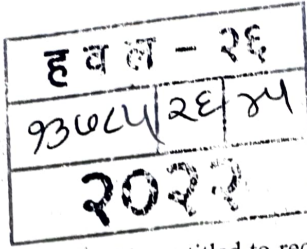 हवल - २६
१३७८५ २६ ४५
२०२२
entitled to rec